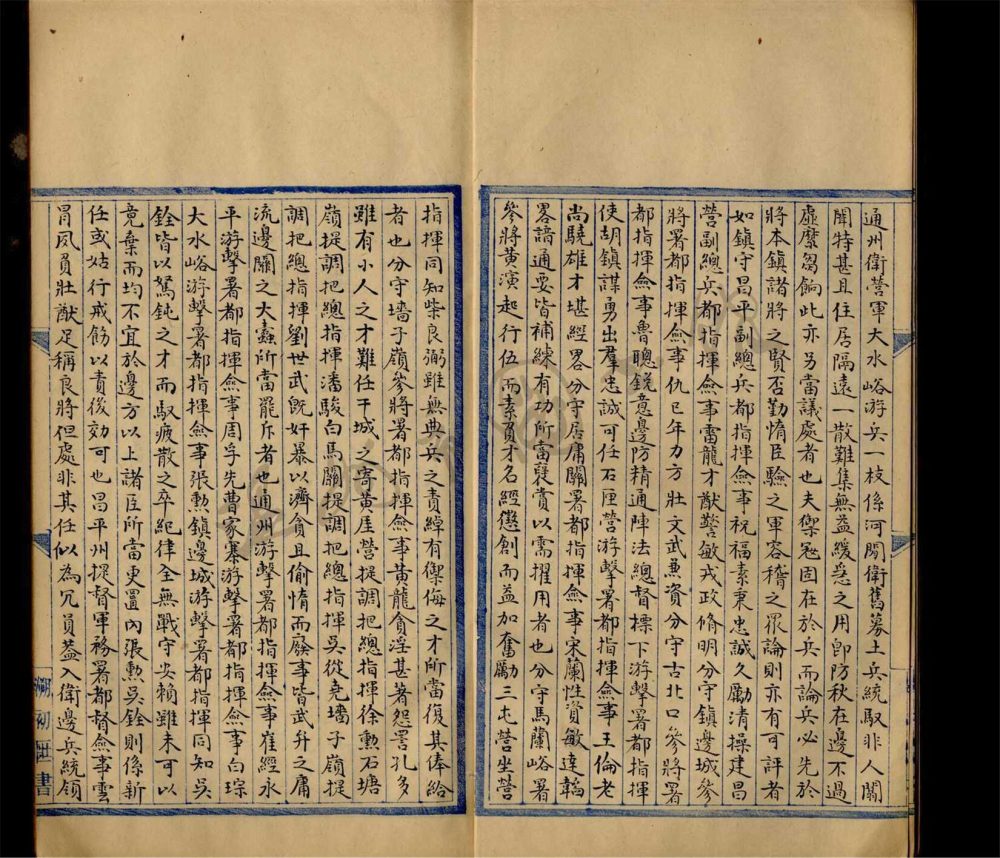 通州衛營軍大水峪游兵一枝係河間衛舊募土兵統馭非人關
閘特甚且住居隔遠一散難集無益緩急之用卽防秋在邊不過
虛糜芻餉此亦另當議處者也夫禦冦固在於兵而論兵必先於
將本鎮諸將之賢否勤惰臣驗之軍容稽之眾論則亦有可評者
如鎮守昌平副總兵都指揮僉事祝福素秉忠誠久勵清操建昌
營副總兵都指揮僉事雷龍才猷警敏戎政脩明分守鎮邊城參
將署都指揮僉事仇巳年力方壯文武兼資分守古北口參將署
都指揮僉事魯聰銳意邊防精通陣法總督標下游擊署都指揮
使胡鎮謀勇出羣忠誠可任石匣營游擊署都指揮僉事王倫老
尚驍雄才堪經畧分守居庸關署都指揮僉事宋蘭性資敏達韜
畧諳通要皆補練有功所當襃賞以需擢用者也分守馬蘭峪署
參將黃演起行伍而素負才名經懲創而益加奮勵三屯營坐營
指揮同知柴良弼雖無典兵之責綽有禦侮之才所當復其俸給
者也分守墻子嶺參將署都指揮僉事黃龍貪淫甚著怨詈孔多
雖有小人之才難任干城之寄黃崖營提調把總指揮徐勲石塘
嶺提調把總指揮潘駿白馬關提調把總指揮吳從堯墻子嶺提
調把總指揮劉世武旣奸暴以濟貪且偷惰而廢事皆武弁之庸
流邊關之大蠹所當罷斥者也通州游擊署都指揮僉事崔經水
平游擊署都指揮僉事周孚先曹家寨游擊署都指揮僉事白琮
大水峪游擊署都指揮僉事張勲鎮邊城游擊署都指揮同知吳
銓皆以駑鈍之才而馭疲散之卒紀律全無戰守安賴雖未可以
竟棄而均不宜於邊方以上諸臣所當更置內張勲吳銓則係新
任或姑行戒飭以責後効可也昌平州提督軍務署都督僉事雲
冒夙負壯猷足稱良將但處非其任似為冗員葢入衛邊兵統領